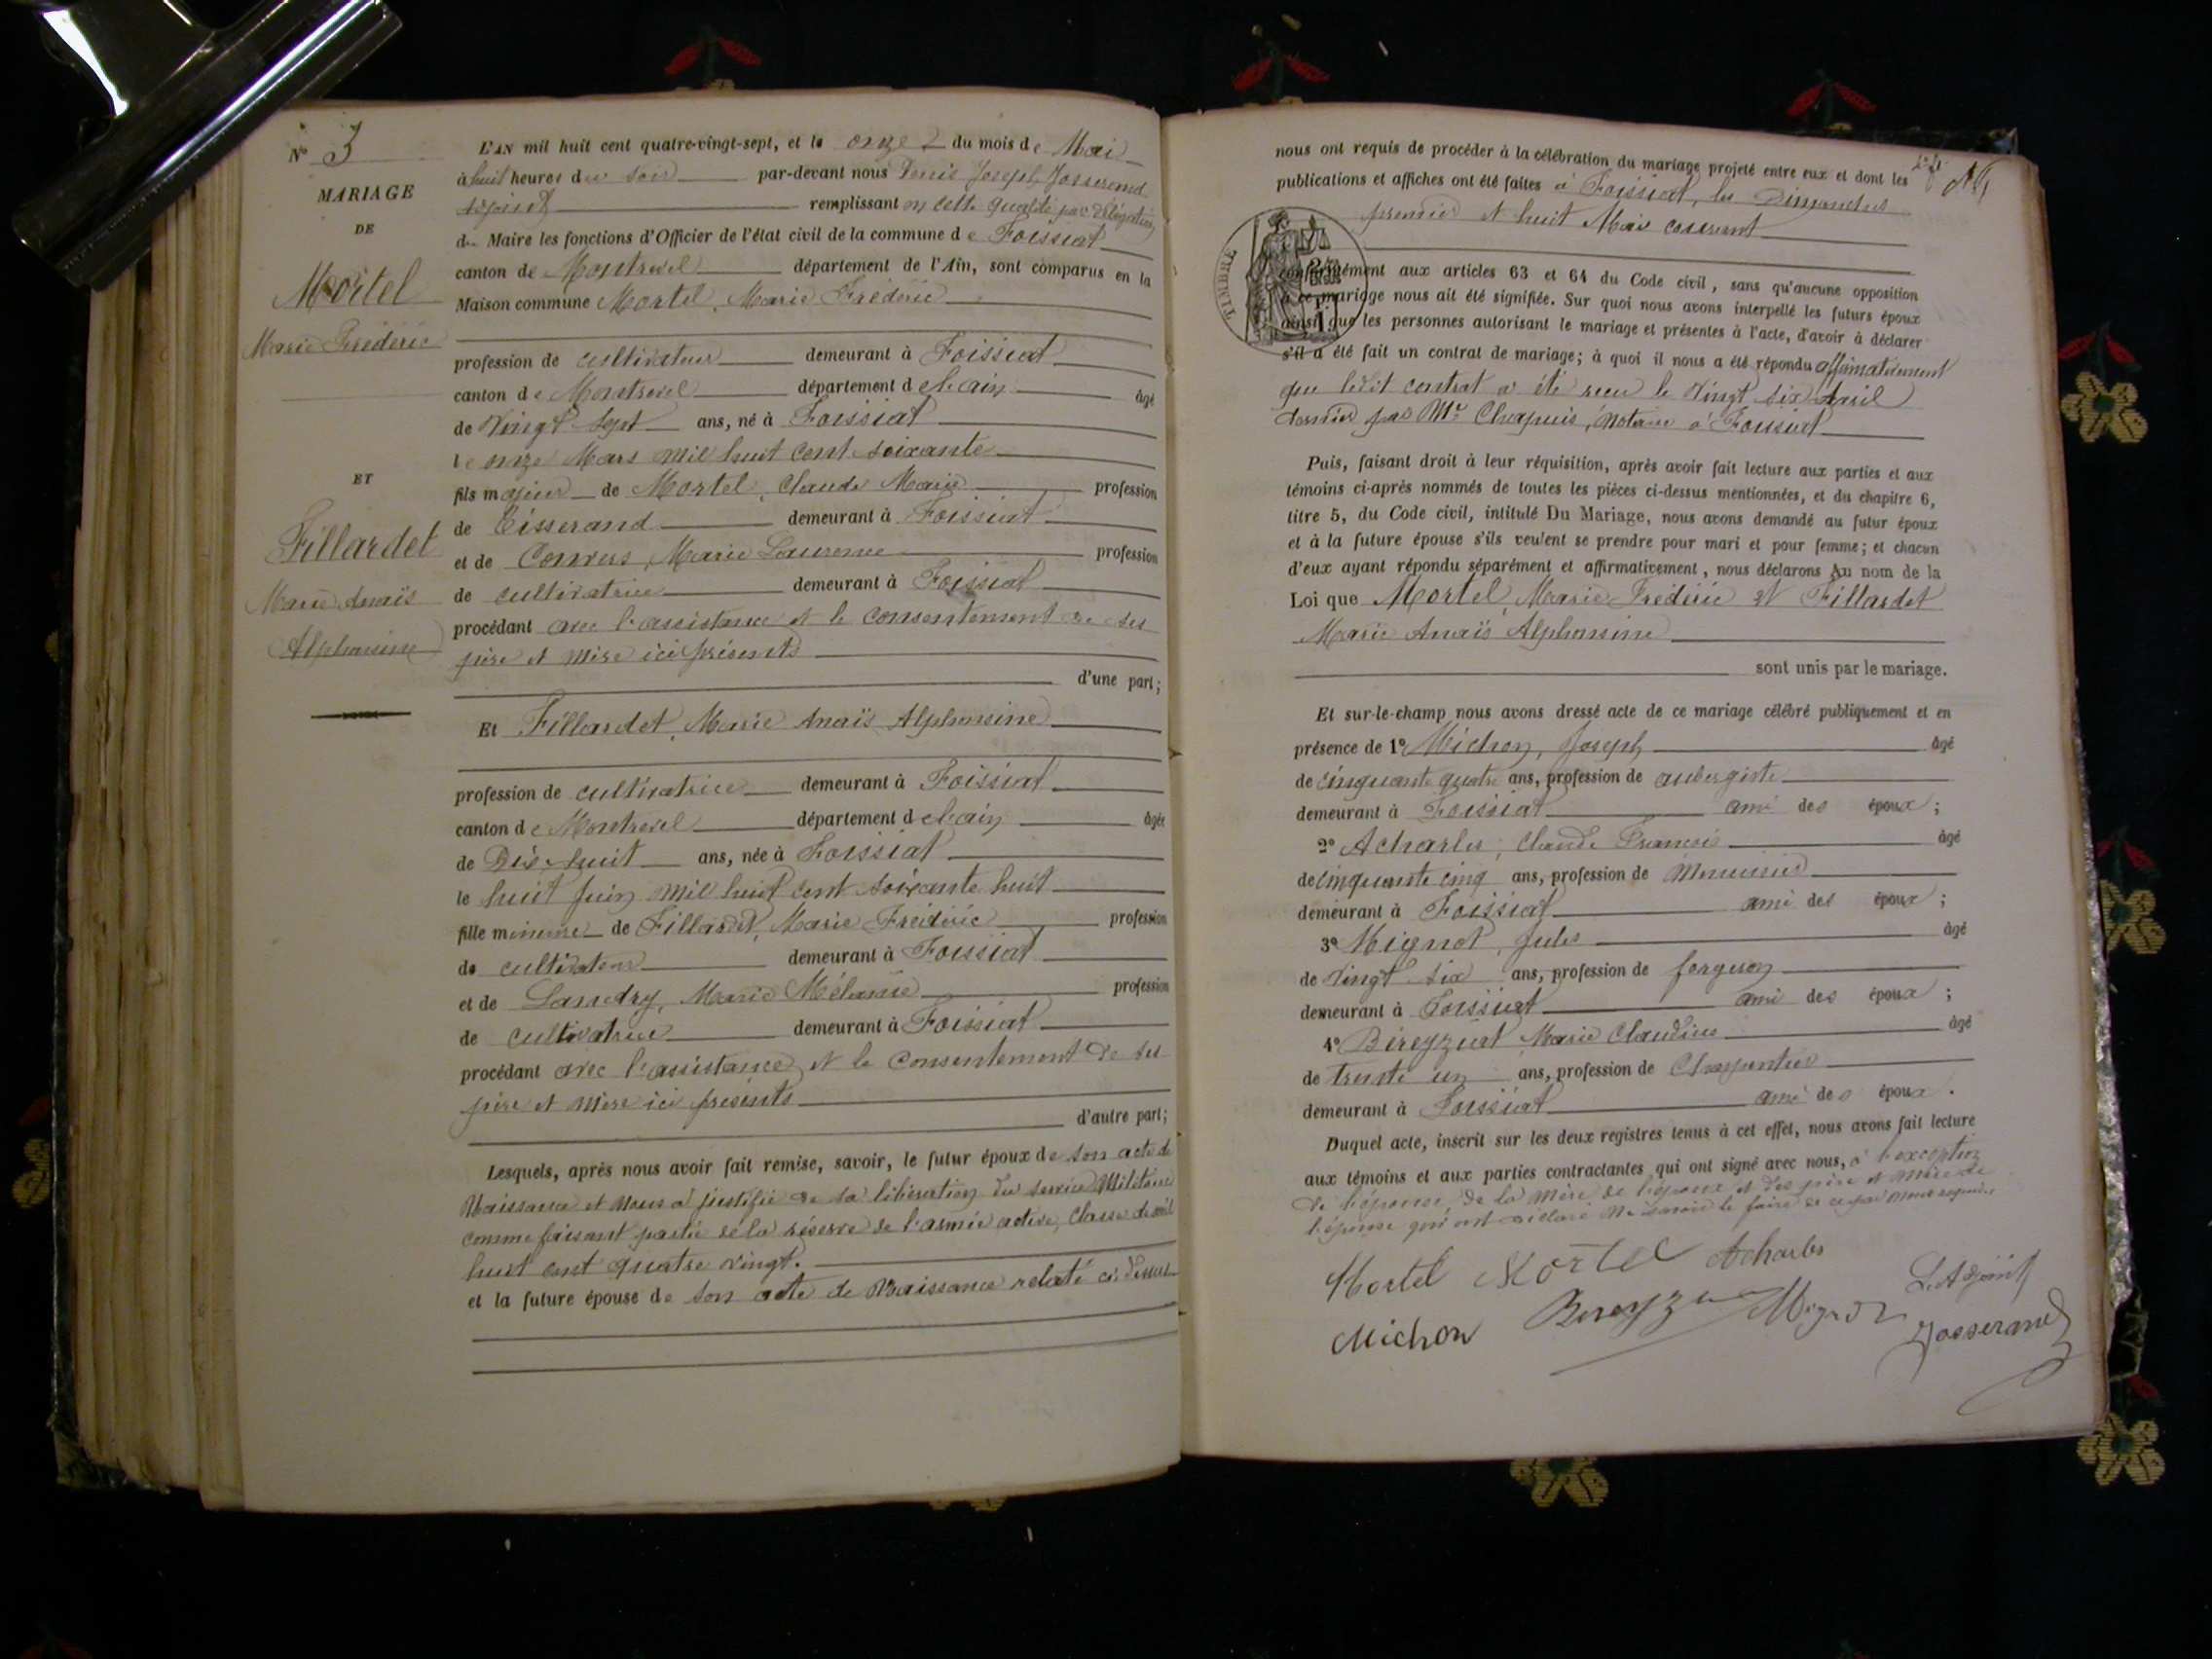 N° 3
MARIAGE
DE
Mortel
Marie Frédéric
ET
Fillardet
Marie Anaïs
Alphonsine
L'AN mil huit cent quatre-vingt-sept, et le onze du mois de Mai
à huit heures du soir par-devant nous Denis Joseph Josserand
adjoint remplissant en cette qualité par délégation
du Maire les fonctions d'Officier de l'état civil de la commune de Foissiat
canton de Montrevel département de l'Ain, sont comparus en la
Maison commune Mortel, Marie Frédéric
profession de cultivateur demeurant à Foissiat
canton de Montrevel département de l'ain âgé
de Vingt Sept ans, né à Foissiat
le onze Mars mil huit cent soixante
fils majeur de Mortel, Claude Marie profession
de Tisserand demeurant à Foissiat
et de Convers, Marie Laurence profession
de cultivatrice demeurant à Foissiat
procédant avec l'assistance et le consentement de ses
père et mère ici présents
d'une part;
Et Fillardet, Marie Anaïs Alphonsine
profession de cultivatrice demeurant à Foissiat
canton de Montrevel département de l'ain âgée
de Dix huit ans, née à Foissiat
le huit Juin mil huit cent soixante huit
fille mineure de Fillardet, Marie Frédéric profession
de cultivateur demeurant à Foissiat
et de Landry, Marie Mélanie profession
de cultivatrice demeurant à Foissiat
procédant avec l'assistance et le consentement de ses
père et mère ici présents
d'autre part;
Lesquels, après nous avoir fait remise, savoir, le futur époux de son acte de
Naissance et nous a justifié de sa libération du service Militaire
comme faisant partie de la réserve de l'armée active, Classe de mil
huit cent quatre vingt.
et la future épouse de son acte de Naissance relaté ci-dessus
nous ont requis de procéder à la célébration du mariage projeté entre eux et dont les
publications et affiches ont été faites à Foissiat, les Dimanches
premier et huit Mai courant
conformément aux articles 63 et 64 du Code civil, sans qu'aucune opposition
à ce mariage nous ait été signifiée. Sur quoi nous avons interpellé les futurs époux
ainsi que les personnes autorisant le mariage et présentes à l'acte, d'avoir à déclarer
s'il a été fait un contrat de mariage; à quoi il nous a été répondu affirmativement
que ledit contrat a été recu le Vingt six Avril
dernier par Me Chapuis, Notaire à Foissiat
TIMBRE
Puis, faisant droit à leur réquisition, après avoir fait lecture aux parties et aux
témoins ci-après nommés de toutes les pièces ci-dessus mentionnées, et du chapitre 6,
titre 5, du Code civil, intitulé Du Mariage, nous avons demandé au futur époux
et à la future épouse s'ils veulent se prendre pour mari et pour femme; et chacun
d'eux ayant répondu séparément et affirmativement, nous déclarons Au nom de la
Loi que Mortel, Marie Frédéric et Fillardet
Marie Anaïs Alphonsine
sont unis par le mariage.
Et sur-le-champ nous avons dressé acte de ce mariage célébré publiquement et en
présence de 1° Michon, Joseph âgé
de cinquante quatre ans, profession de aubergiste
demeurant à Foissiat ami des époux;
2° Acharles, Claude François âgé
de cinquante cinq ans, profession de Menuisier
demeurant à Foissiat ami des époux;
3° Mignot, Jules âgé
de Vingt six ans, profession de forgeron
demeurant à Foissiat ami des époux;
4° Béreyziat Marie Claudius âgé
de trente un ans, profession de Charpentier
demeurant à Foissiat ami des époux.
Duquel acte, inscrit sur les deux registres tenus à cet effet, nous avons fait lecture
aux témoins et aux parties contractantes qui ont signé avec nous, à l'exception
de l'épouse, de la mère de l'époux et des père et mère de
l'épouse qui ont déclaré ne savoir le faire de ce par nous requis.
Mortel Mortel Acharles
L'Adjoint
Michon Mignot Josserand